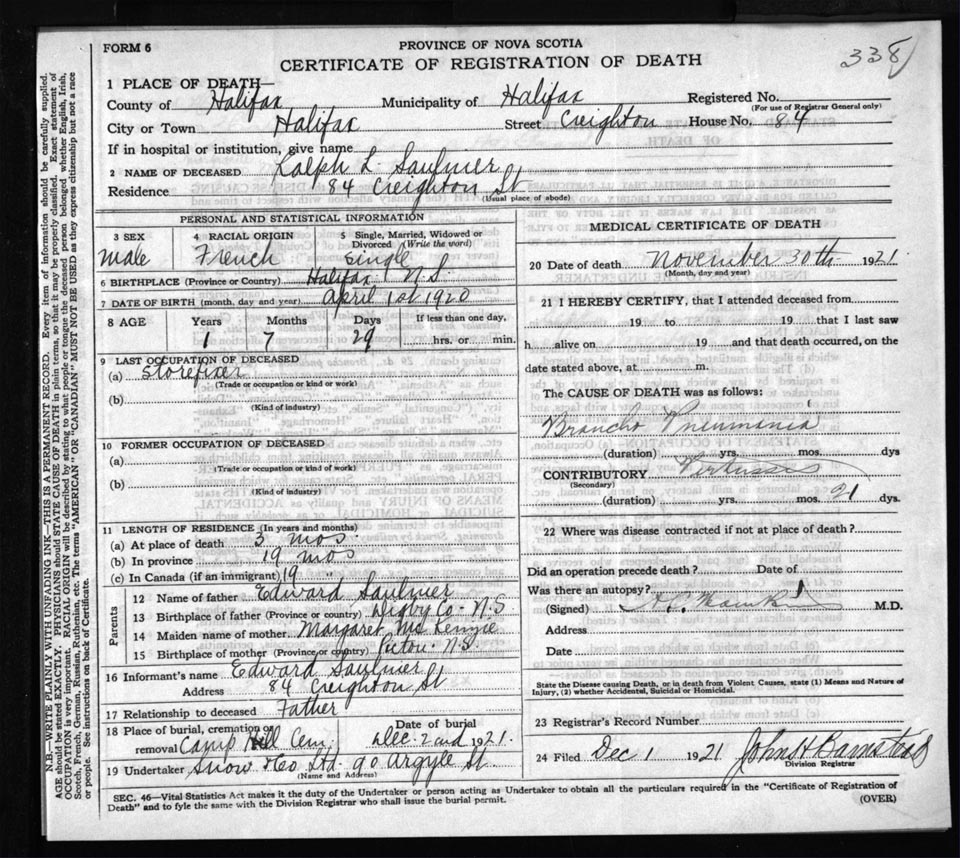 FORM 6
PROVINCE OF NOVA SCOTIA
CERTIFICATE OF REGISTRATION OF DEATH
338
1 PLACE OF DEATH—
County of Halifax Municipality of Halifax Registered No.
(For use of Registrar General only)
City or Town Halifax Street Creighton House No. 84
If in hospital or institution, give name
2 NAME OF DECEASED Ralph L. Saulnier
Residence 84 Creighton St
(Usual place of abode)
PERSONAL AND STATISTICAL INFORMATION
3 SEX 4 RACIAL ORIGIN 5 Single, Married, Widowed or Divorced (Write the word)
Male French Single
6 BIRTHPLACE (Province or Country) Halifax N.S.
7 DATE OF BIRTH (month, day and year) April 1st 1920
8 AGE Years Months Days If less than one day,
1 7 29 hrs. or min.
9 LAST OCCUPATION OF DECEASED
(a)
(Trade or occupation or kind or work)
(b)
(Kind of industry)
10 FORMER OCCUPATION OF DECEASED
(a)
(Trade or occupation or kind of work)
(b)
(Kind of industry)
11 LENGTH OF RESIDENCE (In years and months)
(a) At place of death 3 mos.
(b) In province 19 mos
(c) In Canada (if an immigrant) 19 "
Parents
12 Name of father Edward Saulnier
13 Birthplace of father (Province or country) Digby Co. N.S
14 Maiden name of mother Margaret Mc Kenzie
15 Birthplace of mother (Province or country) Pictou N.S.
16 Informant's name Edward Saulnier
Address 84 Creighton St
17 Relationship to deceased Father
18 Place of burial, cremation or removal Camp Hill Cem. Date of burial Dec. 2nd 1921.
19 Undertaker Snow & Co Ltd. 90 Argyle St.
(Name and Address)
MEDICAL CERTIFICATE OF DEATH
20 Date of death November 30th 1921
(Month, day and year)
21 I HEREBY CERTIFY, that I attended deceased from
19 to 19 that I last saw
h alive on 19 and that death occurred, on the
date stated above, at m.
The CAUSE OF DEATH was as follows:
Broncho Pneumonia
(duration) yrs. mos. dys
CONTRIBUTORY Pertussis
(Secondary)
(duration) yrs. mos. 21 dys.
22 Where was disease contracted if not at place of death?
Did an operation precede death? Date of
Was there an autopsy?
(Signed) M.D.
Address
Date
State the Disease causing Death, or in death from Violent Causes, state (1) Means and Nature of
Injury, (2) whether Accidental, Suicidal or Homicidal.
23 Registrar's Record Number
24 Filed Dec 1 1921 John H Barnstead
Division Registrar
SEC. 46—Vital Statistics Act makes it the duty of the Undertaker or person acting as Undertaker to obtain all the particulars required in the "Certificate of Registration of
Death" and to fyle the same with the Division Registrar who shall issue the burial permit.
(OVER)
N.B.—WRITE PLAINLY WITH UNFADING INK—THIS IS A PERMANENT RECORD. Every item of information should be carefully supplied.
AGE should be stated EXACTLY. PHYSICIANS should STATE CAUSE OF DEATH in plain terms, so that it may be properly classified. Exact statement of
OCCUPATION is very important. RACIAL ORIGIN will be described by stating to what people or tongue the deceased person belonged whether English, Irish,
Scotch, French, German, Russian, Ruthenian, etc. The terms "AMERICAN" OR "CANADIAN" MUST NOT BE USED as they express citizenship but not a race
or people. See instructions on back of Certificate.